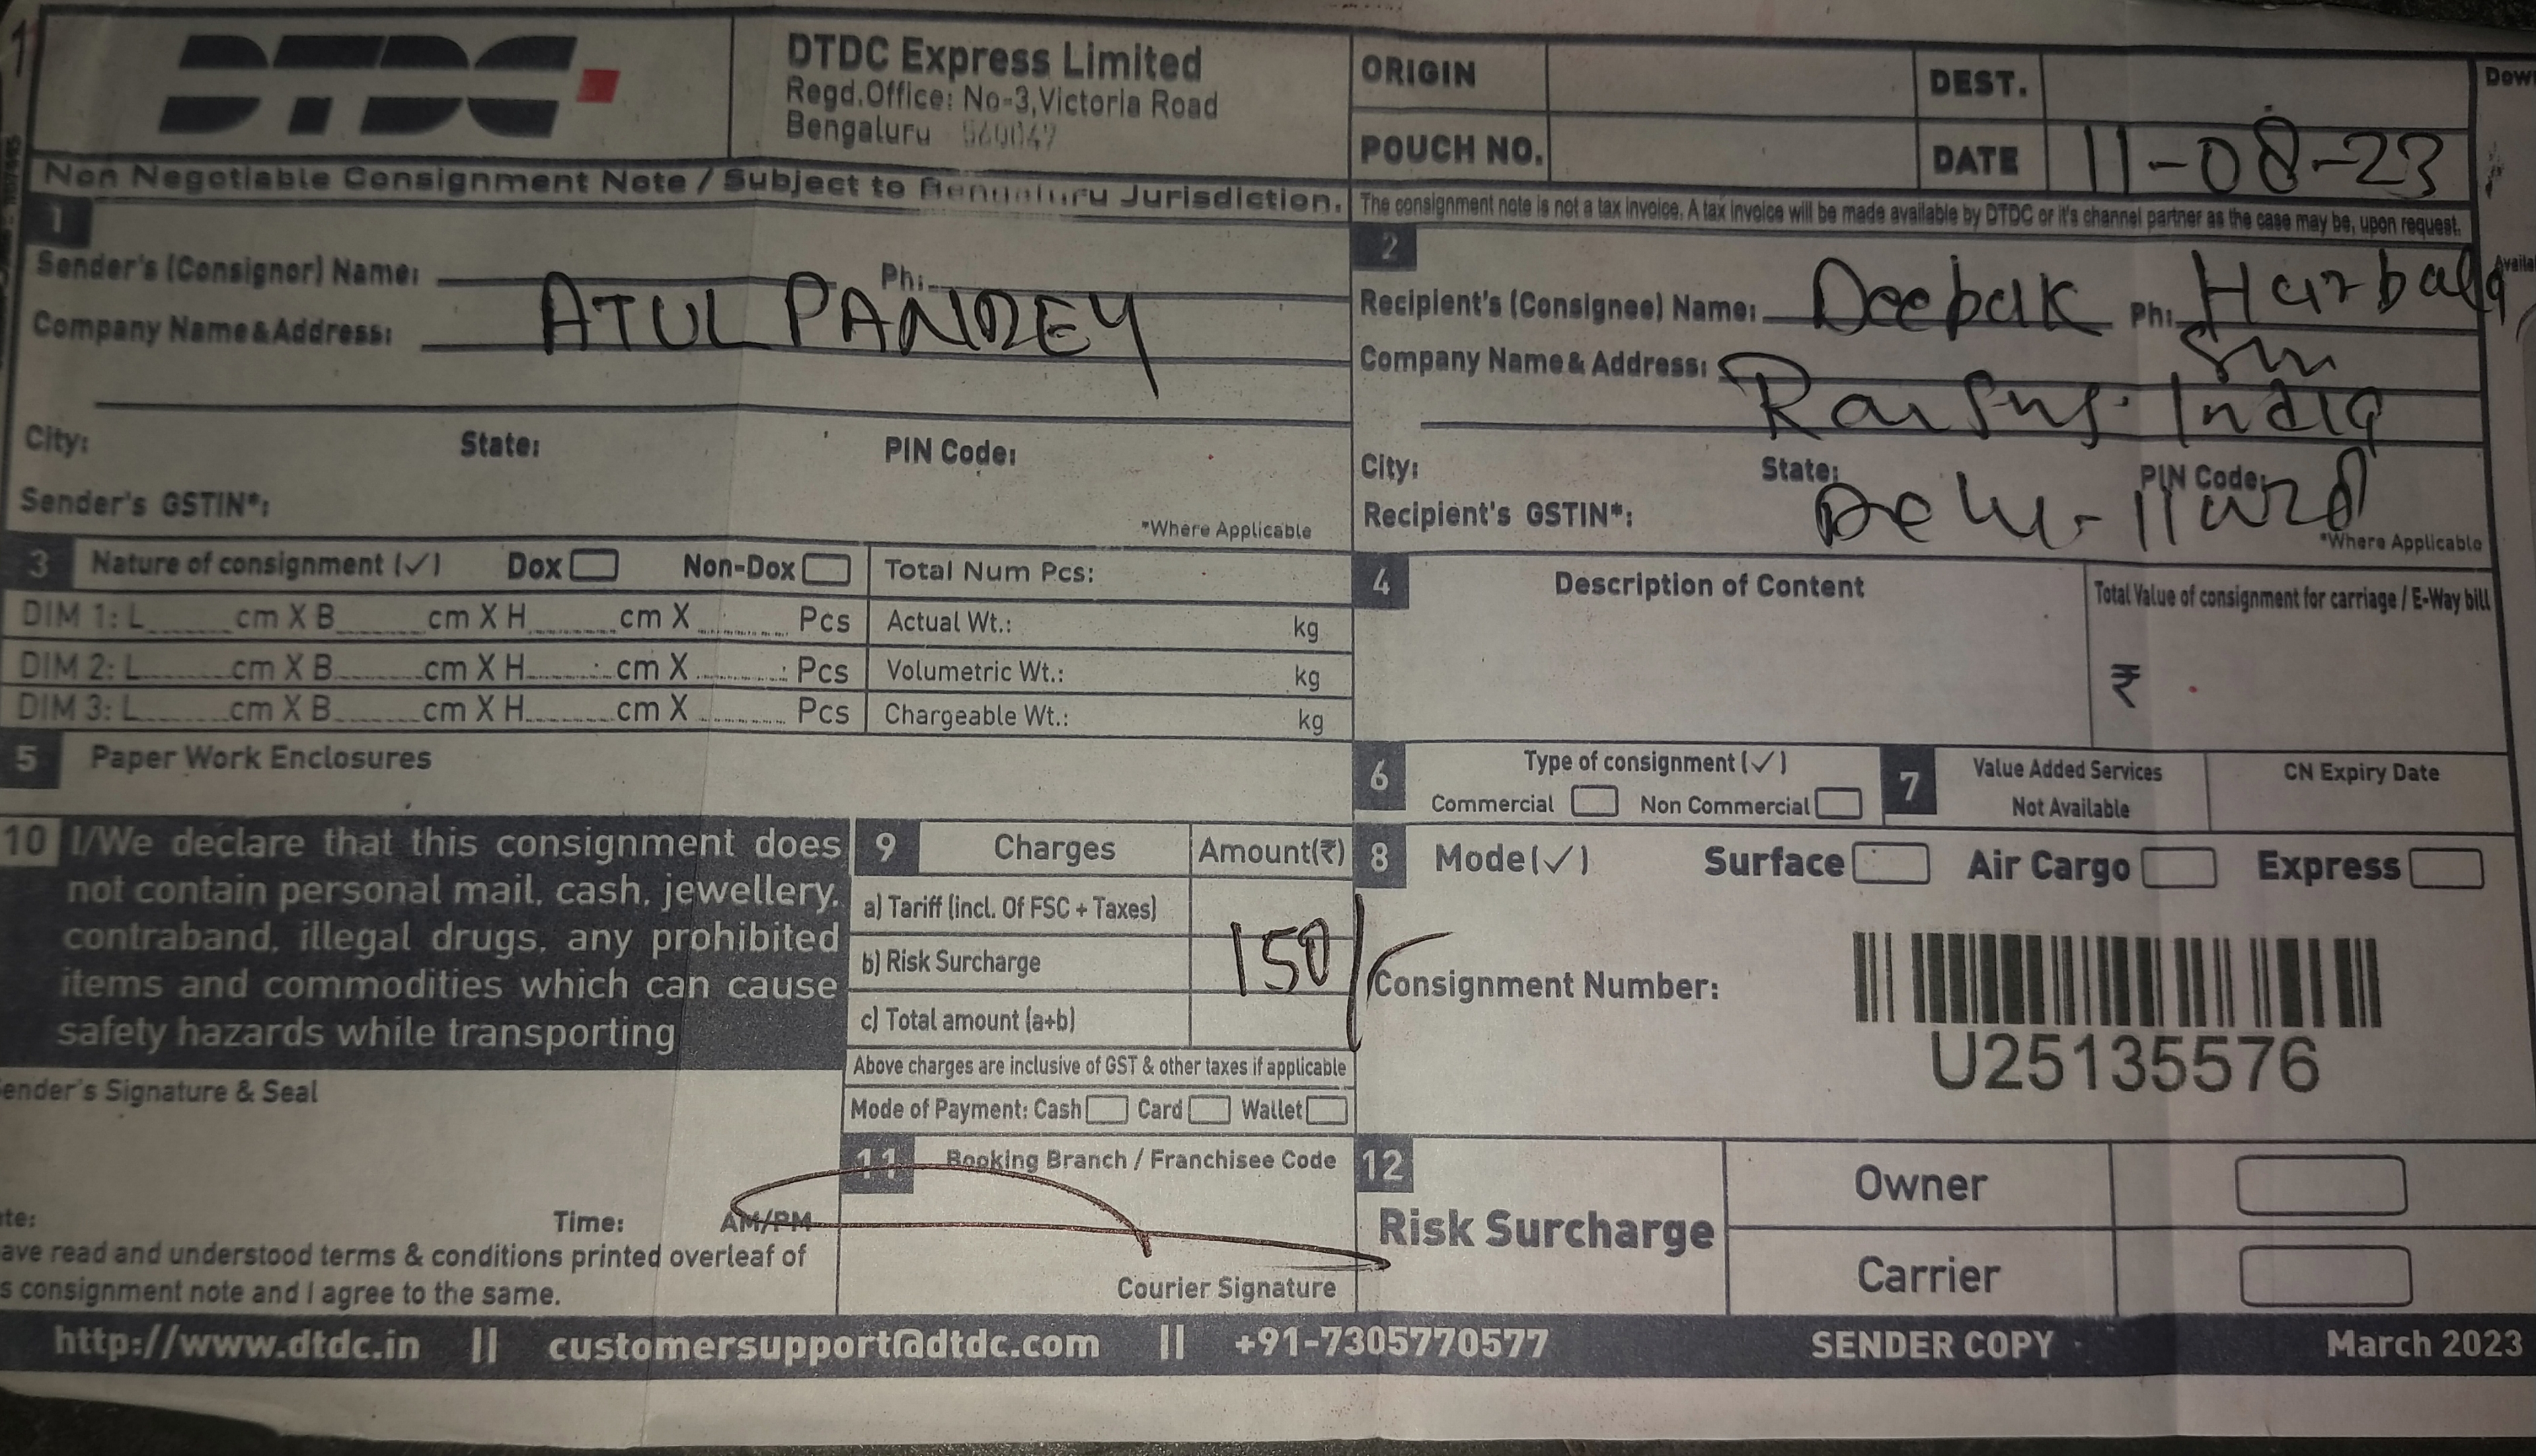 DTDC
DTDC Express Limited
Regd.Office: No-3,Victoria Road
Bengaluru 560047
Non Negotiable Consignment Note / Subject to Bengaluru Jurisdiction.
ORIGIN
DEST.
POUCH NO.
DATE 11-08-23
The consignment note is not a tax invoice. A tax invoice will be made available by DTDC or it's channel partner as the case may be, upon request.
1
Sender's (Consignor) Name: Ph:
ATUL PANDEY
Company Name & Address:
City: State: PIN Code:
Sender's GSTIN*:
*Where Applicable
2
Recipient's (Consignee) Name: Deepak Ph:
Company Name & Address:
India
City: State: PIN Code:
Recipient's GSTIN*:
*Where Applicable
3 Nature of consignment (✓) Dox Non-Dox
Total Num Pcs:
DIM 1: L cm X B cm X H cm X Pcs
Actual Wt.: kg
DIM 2: L cm X B cm X H cm X Pcs
Volumetric Wt.: kg
DIM 3: L cm X B cm X H cm X Pcs
Chargeable Wt.: kg
4 Description of Content
Total Value of consignment for carriage / E-Way bill
₹
5 Paper Work Enclosures
6 Type of consignment (✓)
Commercial Non Commercial
7 Value Added Services
Not Available
CN Expiry Date
10 I/We declare that this consignment does
not contain personal mail, cash, jewellery,
contraband, illegal drugs, any prohibited
items and commodities which can cause
safety hazards while transporting
9 Charges Amount(₹)
a) Tariff (incl. Of FSC + Taxes)
b) Risk Surcharge 150/
c) Total amount (a+b)
Above charges are inclusive of GST & other taxes if applicable
Mode of Payment: Cash Card Wallet
8 Mode(✓) Surface Air Cargo Express
Consignment Number:
U25135576
ender's Signature & Seal
te: Time: AM/PM
ave read and understood terms & conditions printed overleaf of
s consignment note and I agree to the same.
11 Booking Branch / Franchisee Code
Courier Signature
12
Risk Surcharge
Owner
Carrier
http://www.dtdc.in || customersupport@dtdc.com || +91-7305770577 SENDER COPY March 2023